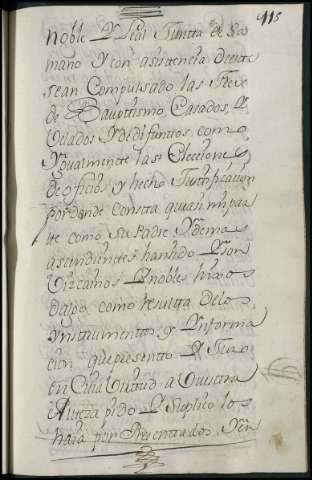 115
noble y Leal Junta de So
mano y con asistencia de este
sean Compulsado las Fees
de Bauptismo, Casados, y
Velados y de difuntos, como
Ygualmente las Eleccione
de oficios y hecho Justificacion
por donde consta que asi mi par
te como su Padre y demas
ascendientes han sido y son
Vizcainos y nobles hixos
dalgo como resulta de los
ynstrumentos, y ynforma
cion que presento y Juro
en Cuia Virtud a Vuestra
Alteza pido y Suplico los
haia por Presentados, y en